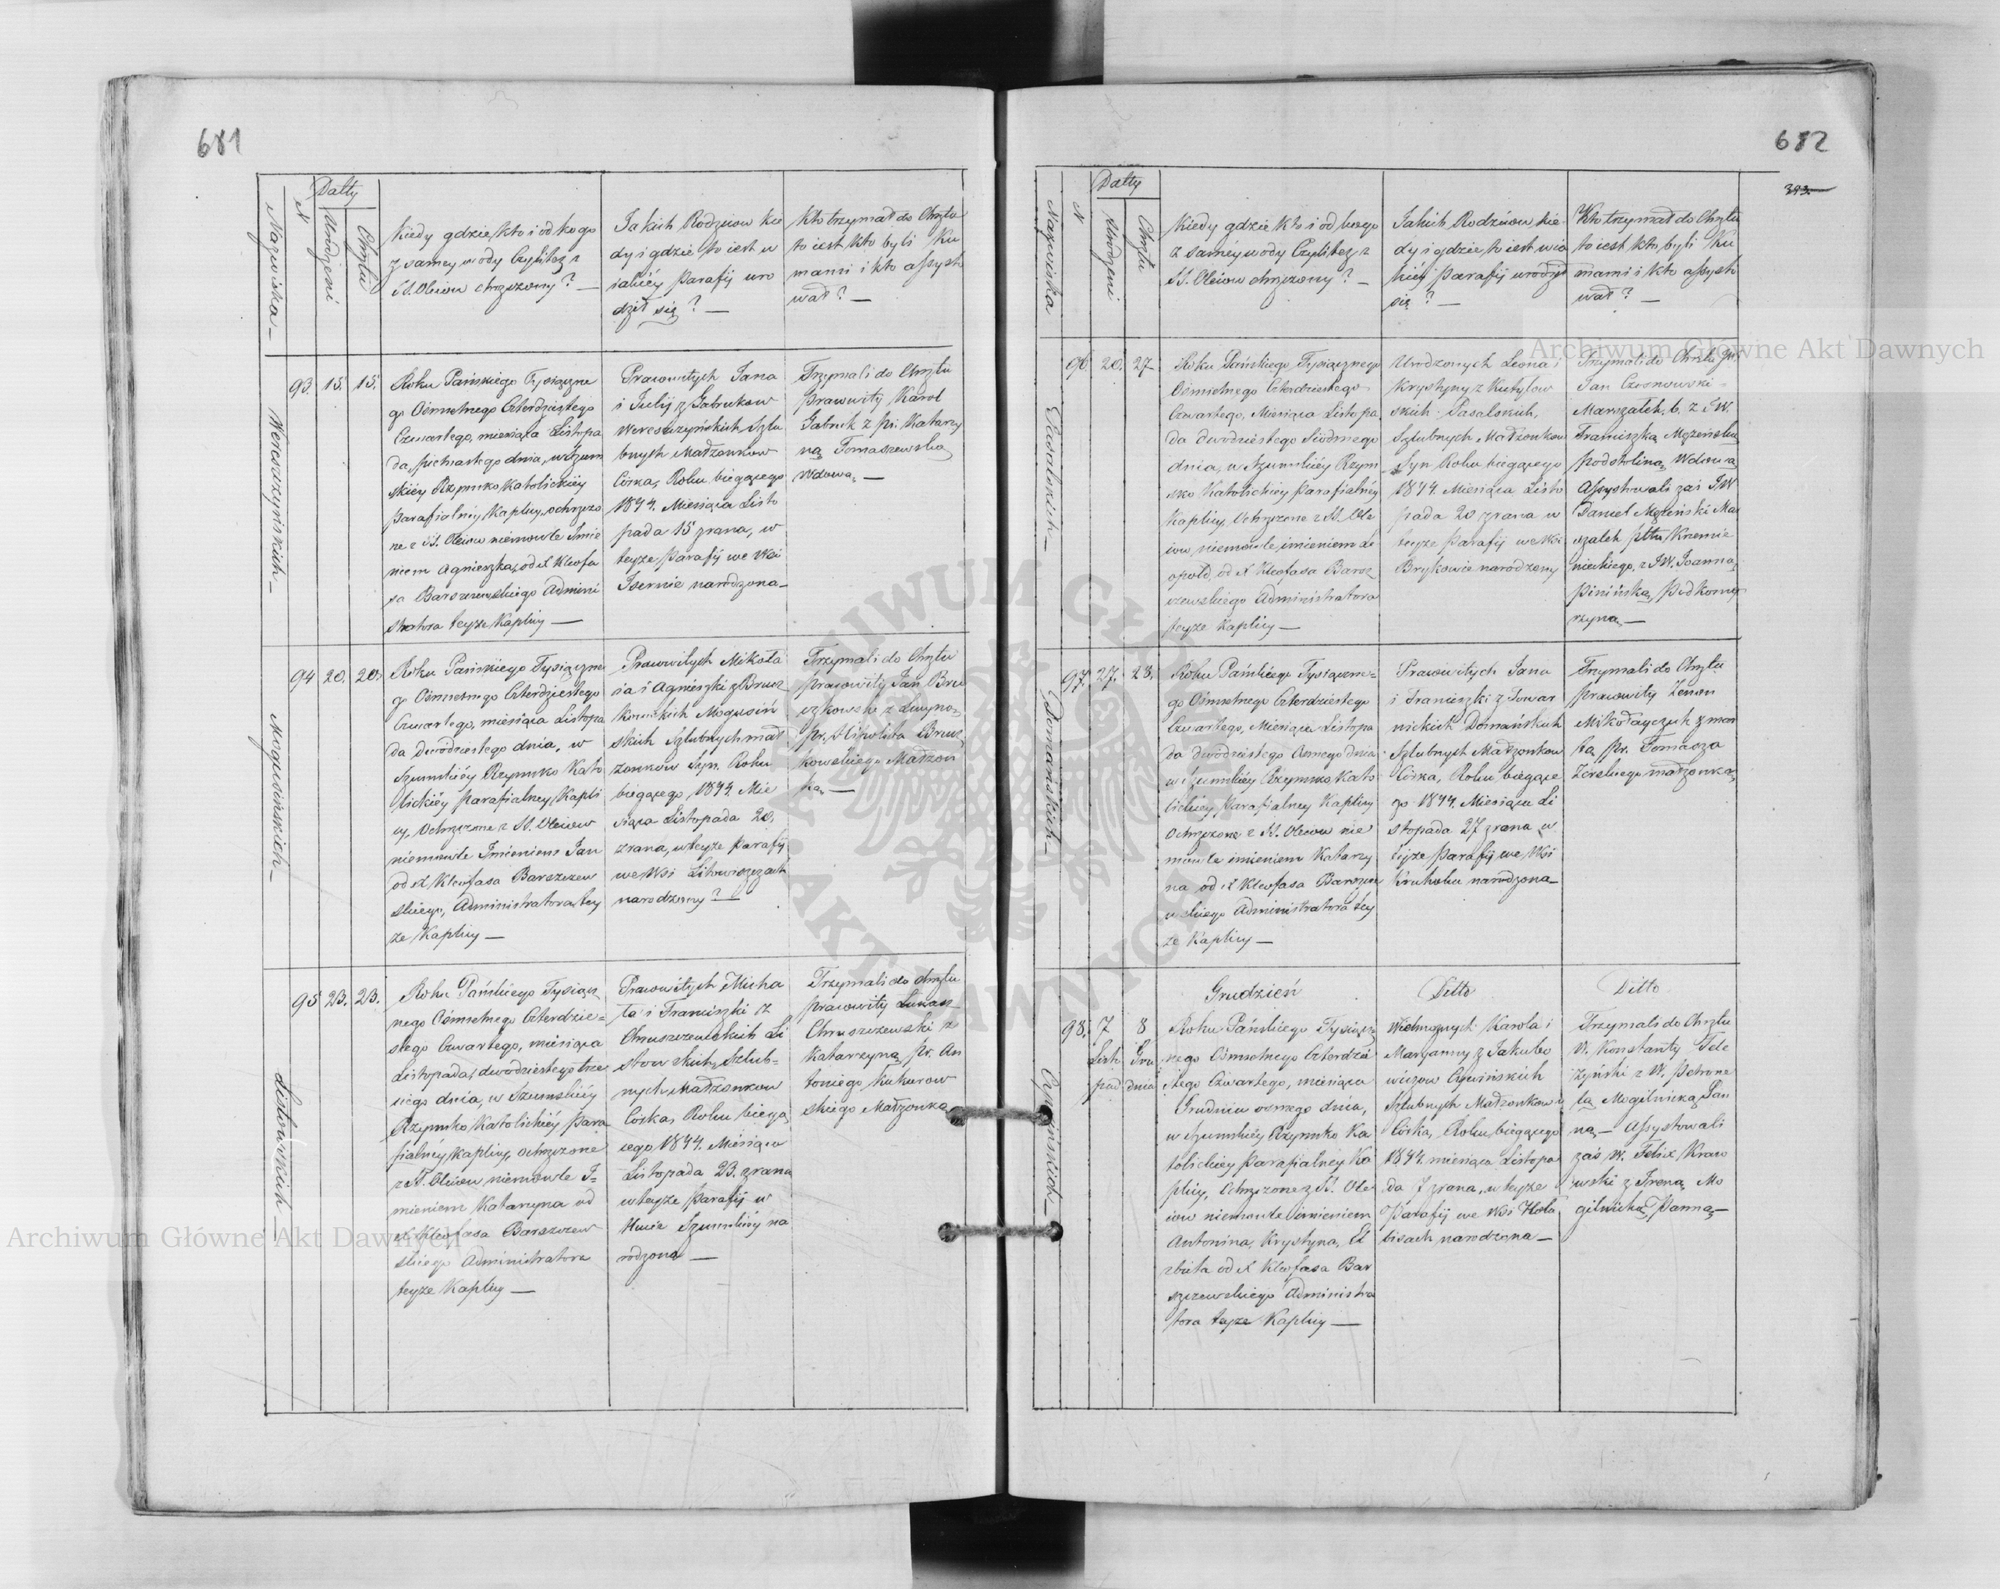 681
Datty
Nazwiska —
N
Urodzeni
Chrztu
Kiedy gdzie, kto i od kogo
z samey wody czyli też z
SS. Oleiow chrzczony? —
Jakich Rodzicow kie
dy i gdzie to iest w
iakiéy Parafij uro
dził się? —
Kto trzymał do Chrztu
to iest kto byli Ku
mami i kto assysto
wał? —
Wereszczyńskich —
93. 15. 15.
Roku Pańskiego Tysiączne
go Osmsetnego Czterdziestego
Czwartego, miesiąca Listopa
da, piętnastego dnia, w Szum
skiéy Rzymsko Katolickiéy
Parafialnéy Kaplicy, ochrzczo
ne z SS. Oleiow niemowle Imie
niem Agnieszka, od X Kleofa
sa Barszczewskiego Admini
stratora teyże Kaplicy —
Pracowitych Jana
i Julij z Gabrukow
Wereszczyńskich Szlu
bnych Małżonkow
Córka, Roku biegącego
1844. Miesiąca Listo
pada 15 zrana, w
teyże Parafij we Wsi
Isernie narodzona —
Trzymali do Chrztu
Pracowity Karol
Gabruk z Pr. Katarzy
ną Tomaszewską
Wdową, —
Mogusińskich —
94 20. 20.
Roku Pańskiego Tysiączne
go Osmsetnego Czterdziestego
Czwartego, miesiąca Listopa
da Dwódziestego dnia, w
Szumskiéy Rzymsko Kato
lickiéy Parafialney Kapli
cy, Ochrzczone z SS. Oleiow
niemowle Imieniem Jan
od X Kleofasa Barszczew
skiego, Administratora tey
że Kaplicy —
Pracowitych Mikoła
ia i Agnieszki z Brucz
kowskich Mogusiń
skich Szlubnych mał
żonkow Syn. Roku
biegącego, 1844. Mie
siąca Listopada 20.
zrana, w teyże Parafij
we Wsi Litowiszczach
narodzony? —
Trzymali do Chrztu
Pracowity Jan Bru
czkowski z
Pr. Hipolita Brucz
kowskiego Małżon
ką, —
Listowskich —
95 23. 23.
Roku Pańskiego Tysiącz
nego Osmsetnego Czterdzie=
stego Czwartego, miesiąca
Listopada, dwódziestego trze
ciego dnia, w Szumskiéy
Rzymsko Katolickiéy Para
fialnéy Kaplicy, ochrzczone
z SS. Oleiow niemowle I=
mieniem Katarzyna od
X. Kleofasa Barszczew
skiego Administratora
teyże Kaplicy —
Pracowitych Micha
ła i Franciszki z
Chruszczewskich Li
stowskich, Szlub=
nych, Małżonkow
Córka, Roku biegą
cego 1844. Miesiąca
Listopada 23. zrana
w teyże Parafij w
Hucie Szumskiéy na
rodzona —
Trzymali do Chrztu
Pracowity Łukasz
Chruszczewski z
Katarzyną, Pr. An
toniego Kukurow
skiego Małżonką
682
393.
Datty
Nazwiska
N
Urodzeni
Chrztu
Kiedy gdzie kto i od kogo
z saméy wody Czyli też z
SS. Oleiow chrzczony? —
Jakich Rodzicow kie
dy i gdzie, to iest w ia
kiéy Parafij urodził
się? —
Kto trzymał do Chrztu
to iest kto byli Ku
mami i kto assysto
wał? —
96. 20. 27
Roku Pańskiego Tysiącznego
Osmsetnego Czterdziestego
Czwartego, Miesiąca Listopa
da dwódziestego Siodmego
dnia, w Szumskiéy Rzym
sko Katolickiéy Parafialnéy
Kaplicy, Ochrzczone z SS. Ole
iow, niemowle, imieniem Le
opold, od X Kleofasa Barsz
czewskiego Administratora
teyże Kaplicy —
Urodzonych Leona i
Krystyny z Kutyłow
skich Pasalskich,
Szlubnych Małżonkow
Syn Roku biegącego
1844. Miesiąca Listo
pada 20 zrana w
teyże Parafij we Wsi
Brykowie narodzony
Trzymali do Chrztu JW.
Jan Czosnowski
Marszałek, b. z JW.
Franciszką Mężeńską
Podstoliną, Wdową
Assystowali zaś JW
Daniel Mężeński Mar
szałek Pttu Krzemie
nieckiego, z JW. Joanną
Pinińską, Podkomo
rzyną, —
Domańskich —
97. 27. 28.
Roku Pańskiego Tysiączne=
go Osmsetnego Czterdziestego
Czwartego, Miesiąca Listopa
da dwódziestego Osmego dnia
w Szumskiéy Rzymsko, Kato
lickiey Parafialney Kaplicy
Ochrzczone z SS. Oleiow nie
mowle imieniem Katarzy
na od X Kleofasa Barszcze
wskiego Administratora tey
że Kaplicy —
Pracowitych Jana
i Franciszki z Towar
nickich Domańskich
Szlubnych Małżonkow
Córka, Roku biegące
go 1844. Miesiąca Li
stopada 27 zrana w
teyże Parafij we, Wsi
Kruhołu narodzona —
Trzymali do Chrztu
Pracowity Zenon
Mikołayczuk z
Pr. Tomasza
małżonką,
98. 7 8
Listo
pad
Gru
dnia
Grudzień
Roku Pańskiego Tysiącz
nego Osmsetnego Czterdzie
stego Czwartego, miesiąca
Grudnia osmego dnia,
w Szumskiéy Rzymsko Ka
tolickiey Parafialney Ka
plicy, Ochrzczone z SS. Ole
iow niemowle imieniem
Antonina, Krystyna, El
żbieta od X Kleofasa Bar
szczewskiego Administra
tora teyże Kaplicy —
Ditto
Wielmożnych Karola i
Maryanny z Jakubo
wiczow
Szlubnych Małżonkow
Córka, Roku, biegącego
1844. miesiąca Listopa
da 7 zrana, w teyże
Parafij we Wsi Hołu
bisach narodzona —
Ditto
Trzymali do Chrztu
W. Konstanty Tele
żyński z W. Petrone
lą Mogilnicką Pan
ną — Assystowali
zaś W. Felix Kraw
wski z Ireną Mo
gilnicką, Panną —
Archiwum Główne Akt Dawnych
Archiwum Główne Akt Dawnych
ARCHIWUM GŁÓWNE AKT DAWNYCH